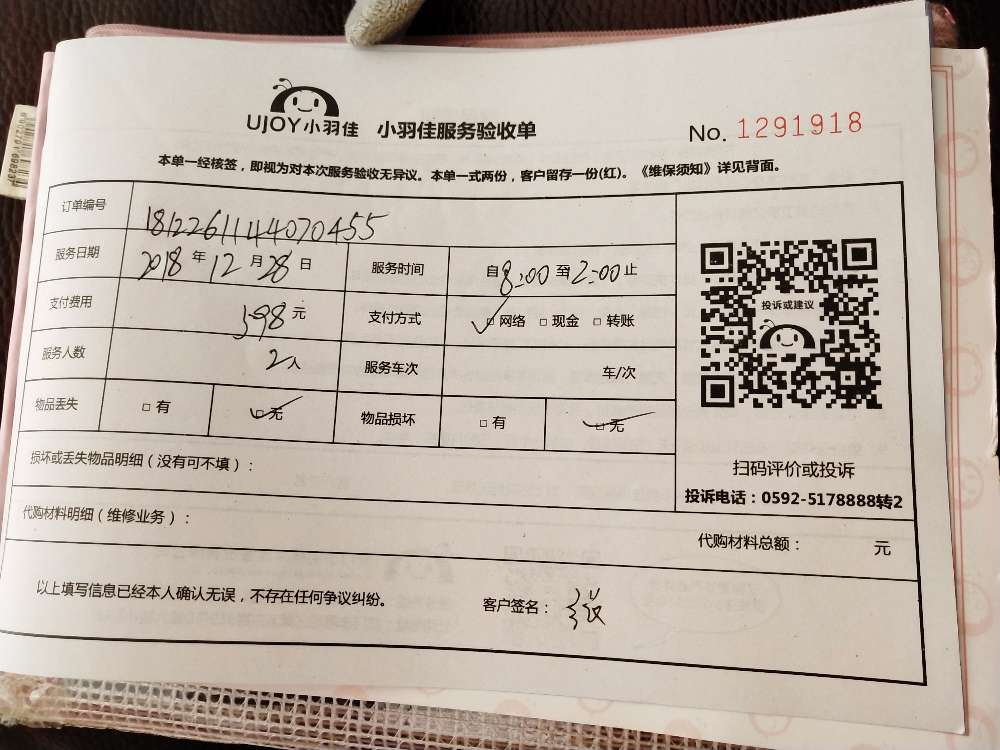 UJOY小羽佳 小羽佳服务验收单 No. 1291918
本单一经核签，即视为对本次服务验收无异议。本单一式两份，客户留存一份(红)。《维保须知》详见背面。
订单编号 18122611144070455
服务日期 2018年12月28日 服务时间 自8:00至2:00止
支付费用 398元 支付方式 □网络 □现金 □转账
服务人数 2人 服务车次 车/次
物品丢失 □有 □无 物品损坏 □有 □无
损坏或丢失物品明细（没有可不填）：
投诉或建议
扫码评价或投诉
投诉电话：0592-5178888转2
代购材料明细（维修业务）：
代购材料总额： 元
以上填写信息已经本人确认无误，不存在任何争议纠纷。 客户签名：